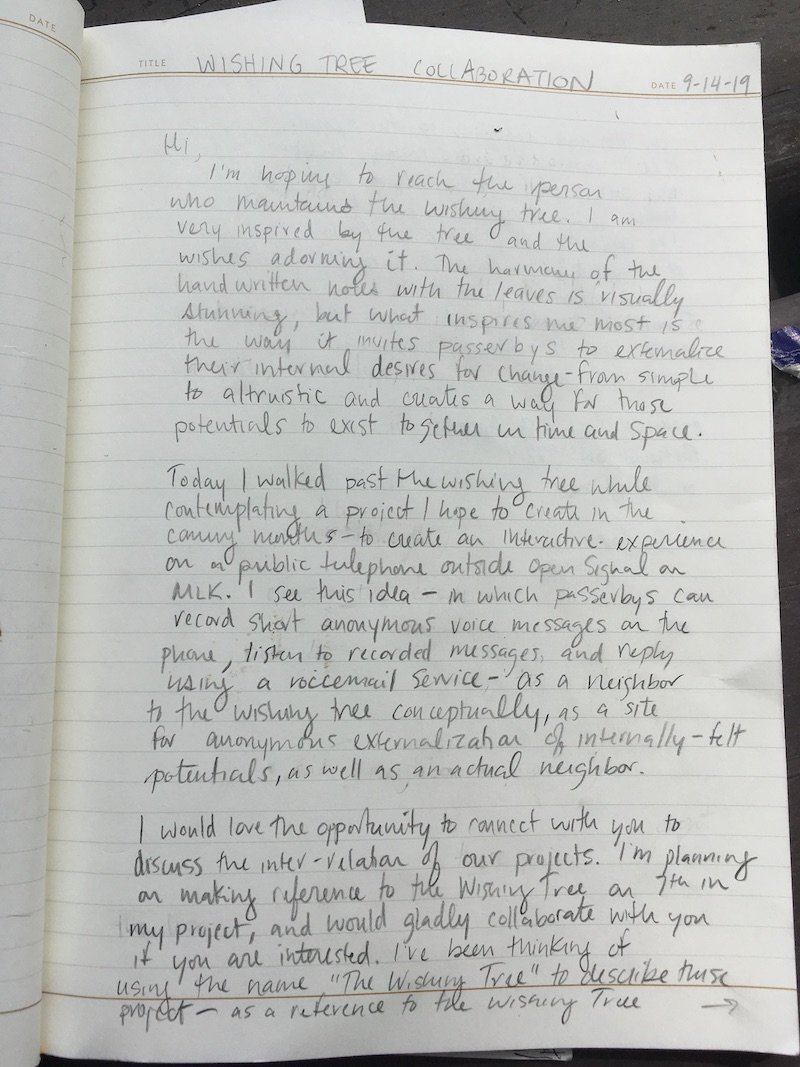 DATE
TITLE WISHING TREE COLLABORATION DATE 9-14-19
Hi,
I'm hoping to reach the person
who maintains the wishing tree. I am
very inspired by the tree and the
wishes adorning it. The harmony of the
handwritten notes with the leaves is visually
stunning, but what inspires me most is
the way it invites passerbys to externalize
their internal desires for change - from simple
to altruistic and creates a way for those
potentials to exist together in time and space.
Today I walked past the wishing tree while
contemplating a project I hope to create in the
coming months - to create an interactive experience
on a public telephone outside Open Signal on
MLK. I see this idea - in which passerbys can
record short anonymous voice messages on the
phone, listen to recorded messages, and reply
using a voicemail service - as a neighbor
to the wishing tree conceptually, as a site
for anonymous externalization of internally-felt
potentials, as well as an actual neighbor.
I would love the opportunity to connect with you to
discuss the inter-relation of our projects. I'm planning
on making reference to the Wishing Tree on 7th in
my project, and would gladly collaborate with you
if you are interested. I've been thinking of
using the name "The Wishing Tree" to describe these
project - as a reference to the Wishing Tree →